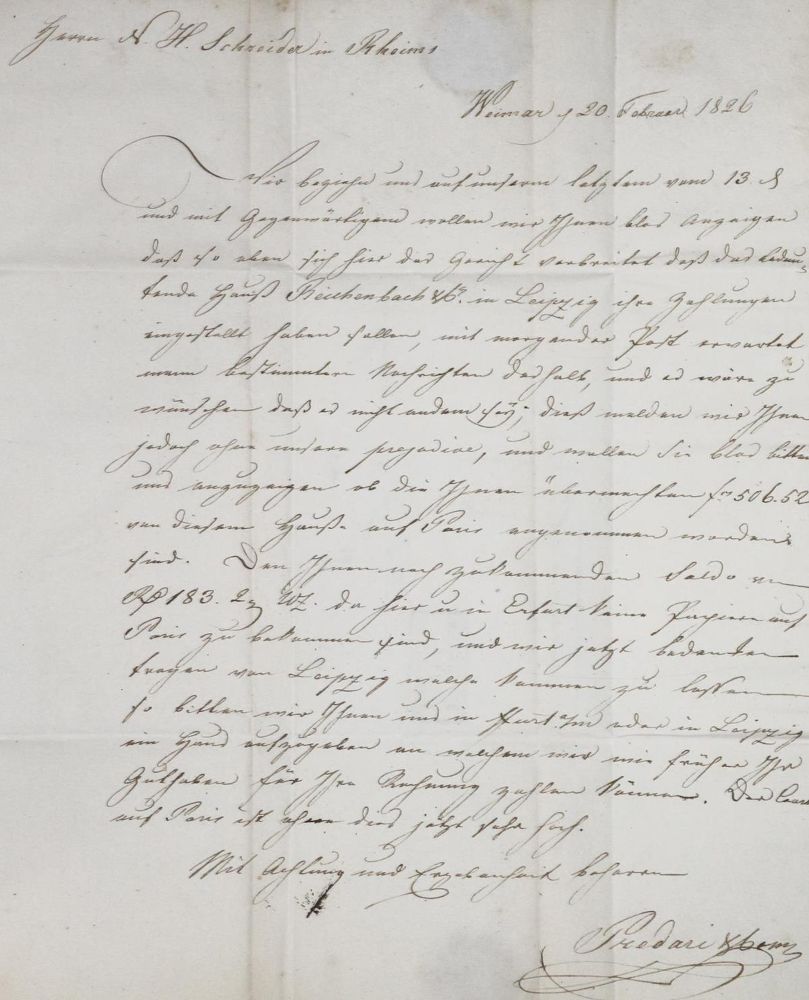 Herrn N. H. Schreider in Rheims
Weimar d 20. Februar 1826
Wir beziehn uns auf unserm letztem vom 13. d
und mit Gegenwärtigem wollen wir Ihnen blos Anzeigen
daß so eben sich hier das Gerücht verbreitet daß das bedeu-
tende Hauß Reichenbach & Co. in Leipzig ihre Zahlungen
eingestellt haben sollen, mit morgender Post erwartet
mann bestimmtere Nachrichten deshalb, und es wäre zu
wünschen daß es nicht andem sey; dieß melden wir Ihnen
jedoch ohne unsere prejudice, und wollen Sie blos bitten
uns anzuzeigen ob die Ihnen übermachten fr 506.52
von diesem Hauße auf Paris angenommen worden
sind. Den Ihnen noch zukommenden Saldo von
Rth 183. 2 da hier u in Erfurt keine Papiere auf
Paris zu bekommen sind, und wir jetzt bedenken
tragen von Leipzig welche kommen zu lassen
so bitten wir Ihnen uns in Ffurt a/m oder in Leipzig
ein Haus aufzugeben an welchem wir wie früher Ihr
Guthaben für Ihre Rechnung zahlen können. Der Cours
auf Paris ist ohne dies jetzt sehr hoch.
Mit Achtung und Ergebenheit beharren
Predari & Comp